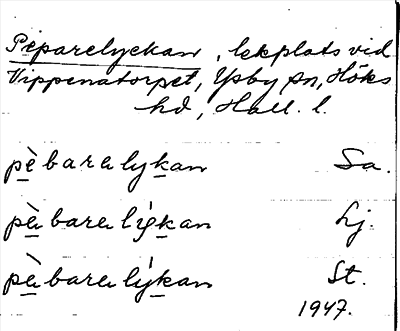 Peparelyckan, lekplats vid
Vippenatorpet, Ysby sn, Höks
hd, Hall. l.
pèbaralykan Sa.
pàbaralýkan Lj.
pàbaralýkan St.
1947.